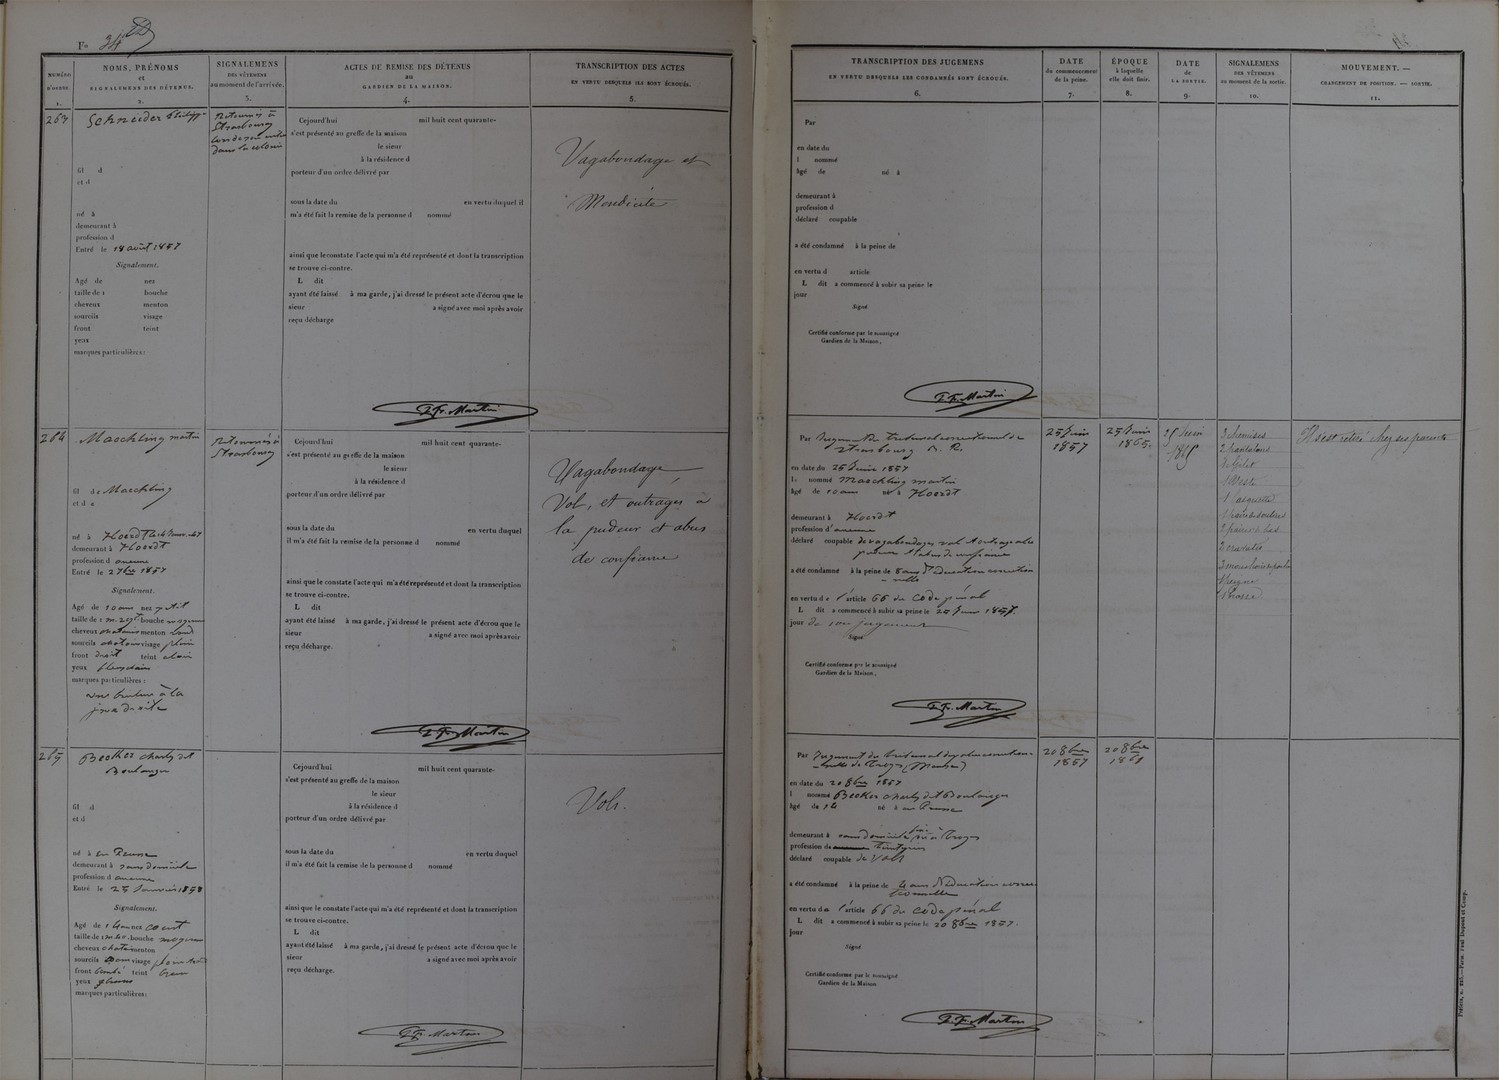 Fo 34
NUMÉRO
d'ordre.
1.
NOMS, PRÉNOMS
et
SIGNALEMENS DES DÉTENUS.
2.
SIGNALEMENS
DES VÊTEMENS
au moment de l'arrivée.
3.
ACTES DE REMISE DES DÉTENUS
au
GARDIEN DE LA MAISON.
4.
TRANSCRIPTION DES ACTES
EN VERTU DESQUELS ILS SONT ÉCROUÉS.
5.
263
Schneider Philipp
fil d
et d
né à
demeurant à
profession d
Entré le 18 août 1857
Signalement.
Agé de nez
taille de 1 bouche
cheveux menton
sourcils visage
front teint
yeux
marques particulières :
Retourné à
Strasbourg
dans la colonie
Cejourd'hui mil huit cent quarante-
s'est présenté au greffe de la maison
le sieur
à la résidence d
porteur d'un ordre délivré par
sous la date du en vertu duquel il
m'a été fait la remise de la personne d nommé
ainsi que le constate l'acte qui m'a été représenté et dont la transcription
se trouve ci-contre.
L dit
ayant été laissé à ma garde, j'ai dressé le présent acte d'écrou que le
sieur a signé avec moi après avoir
reçu décharge
Martin
Vagabondage et
Mendicité
264
Maechling martin
fil de Maechling
et d
né à Hoerdt
demeurant à Hoerdt
profession d aucune
Entré le 2 7bre 1857
Signalement.
Agé de 10 ans nez petit
taille de 1 m. bouche moyenne
cheveux chatains menton rond
sourcils chatains visage plein
front droit teint clair
yeux
marques particulières :
une à la
joue droite
Retourné à
Strasbourg
Cejourd'hui mil huit cent quarante-
s'est présenté au greffe de la maison
le sieur
à la résidence d
porteur d'un ordre délivré par
sous la date du en vertu duquel
il m'a été fait la remise de la personne d nommé
ainsi que le constate l'acte qui m'a été représenté et dont la transcription
se trouve ci-contre.
L dit
ayant été laissé à ma garde, j'ai dressé le présent acte d'écrou que le
sieur a signé avec moi après avoir
reçu décharge.
Martin
Vagabondage,
Vol, et outrages à
la pudeur et abus
de confiance
265
Becker charles dit
Boulanger
fil d
et d
né à en Prusse
demeurant à sans domicile
profession d aucune
Entré le 25 Janvier 1858
Signalement.
Agé de 14 ans nez court
taille de 1 m 40 bouche moyenne
cheveux chatains menton
sourcils visage plein
front bombé teint brun
yeux
marques particulières :
Cejourd'hui mil huit cent quarante-
s'est présenté au greffe de la maison
le sieur
à la résidence d
porteur d'un ordre délivré par
sous la date du en vertu duquel
il m'a été fait la remise de la personne d nommé
ainsi que le constate l'acte qui m'a été représenté et dont la transcription
se trouve ci-contre.
L dit
ayant été laissé à ma garde, j'ai dressé le présent acte d'écrou que le
sieur a signé avec moi après avoir
reçu décharge.
Martin
Vols.
TRANSCRIPTION DES JUGEMENS
EN VERTU DESQUELS LES CONDAMNÉS SONT ÉCROUÉS.
6.
DATE
du commencement
de la peine.
7.
ÉPOQUE
à laquelle
elle doit finir.
8.
DATE
de
LA SORTIE.
9.
SIGNALEMENS
DES VÊTEMENS
au moment de la sortie.
10.
MOUVEMENT. —
CHANGEMENT DE POSITION. — SORTIE.
11.
Par
en date du
l nommé
âgé de né à
demeurant à
profession d
déclaré coupable
a été condamné à la peine de
en vertu d article
L dit a commencé à subir sa peine le
jour
Signé
Certifié conforme par le soussigné
Gardien de la Maison,
Martin
Par Jugement du tribunal correctionnel de
Strasbourg B. R.
en date du 25 Juin 1857
le nommé Maechling martin
âgé de 10 ans né à Hoerdt
demeurant à Hoerdt
profession d'aucune
déclaré coupable de vagabondages vol et outrage à la
pudeur et abus de confiance
a été condamné à la peine de 8 ans d'Education correction
-nelle
en vertu de l'article 66 du Code pénal
L dit a commencé à subir sa peine le 25 Juin 1857
jour de son jugement
Signé
Certifié conforme par le soussigné
Gardien de la Maison,
Martin
25 Juin
1857
25 Juin
1865.
25 Juin
1865
3 chemises
2 pantalons
1 Gilet
1 Veste
1 Casquette
1 paire de souliers
2 paires de bas
2 cravates
3 mouchoirs de poche
1 peigne
1 brosse
Il s'est retiré chez ses parents
Par Jugement du tribunal de police correction-
-nelle de Troyes
en date du 20 8bre 1857
l nommé Becker charles dit Boulanger
âgé de 14 né à en Prusse
demeurant à sans domicile à Troyes
profession de
déclaré coupable de Vols
a été condamné à la peine de 4 ans d'Education corre
tionnelle
en vertu de l'article 66 du Code pénal
L dit a commencé à subir sa peine le 20 8bre 1857.
jour
Signé
Certifié conforme par le soussigné
Gardien de la Maison
Martin
20 8bre
1857
20 8bre
1861